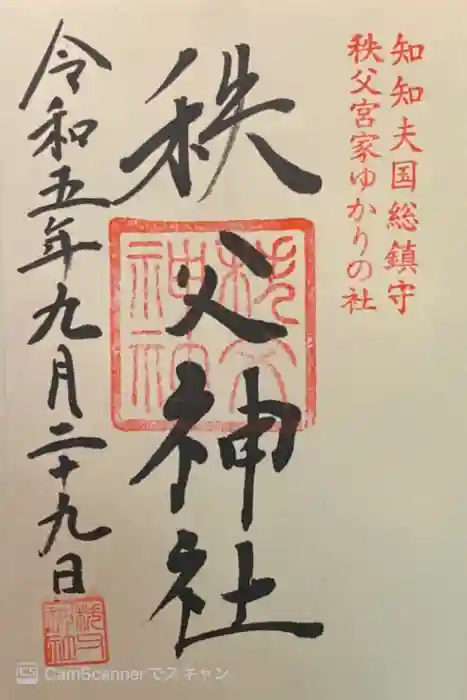 知知夫国総鎮守
秩父宮家ゆかりの社
秩父神社
秩父神社
令和五年九月二十九日
秩父神社
CS CamScannerでスキャン